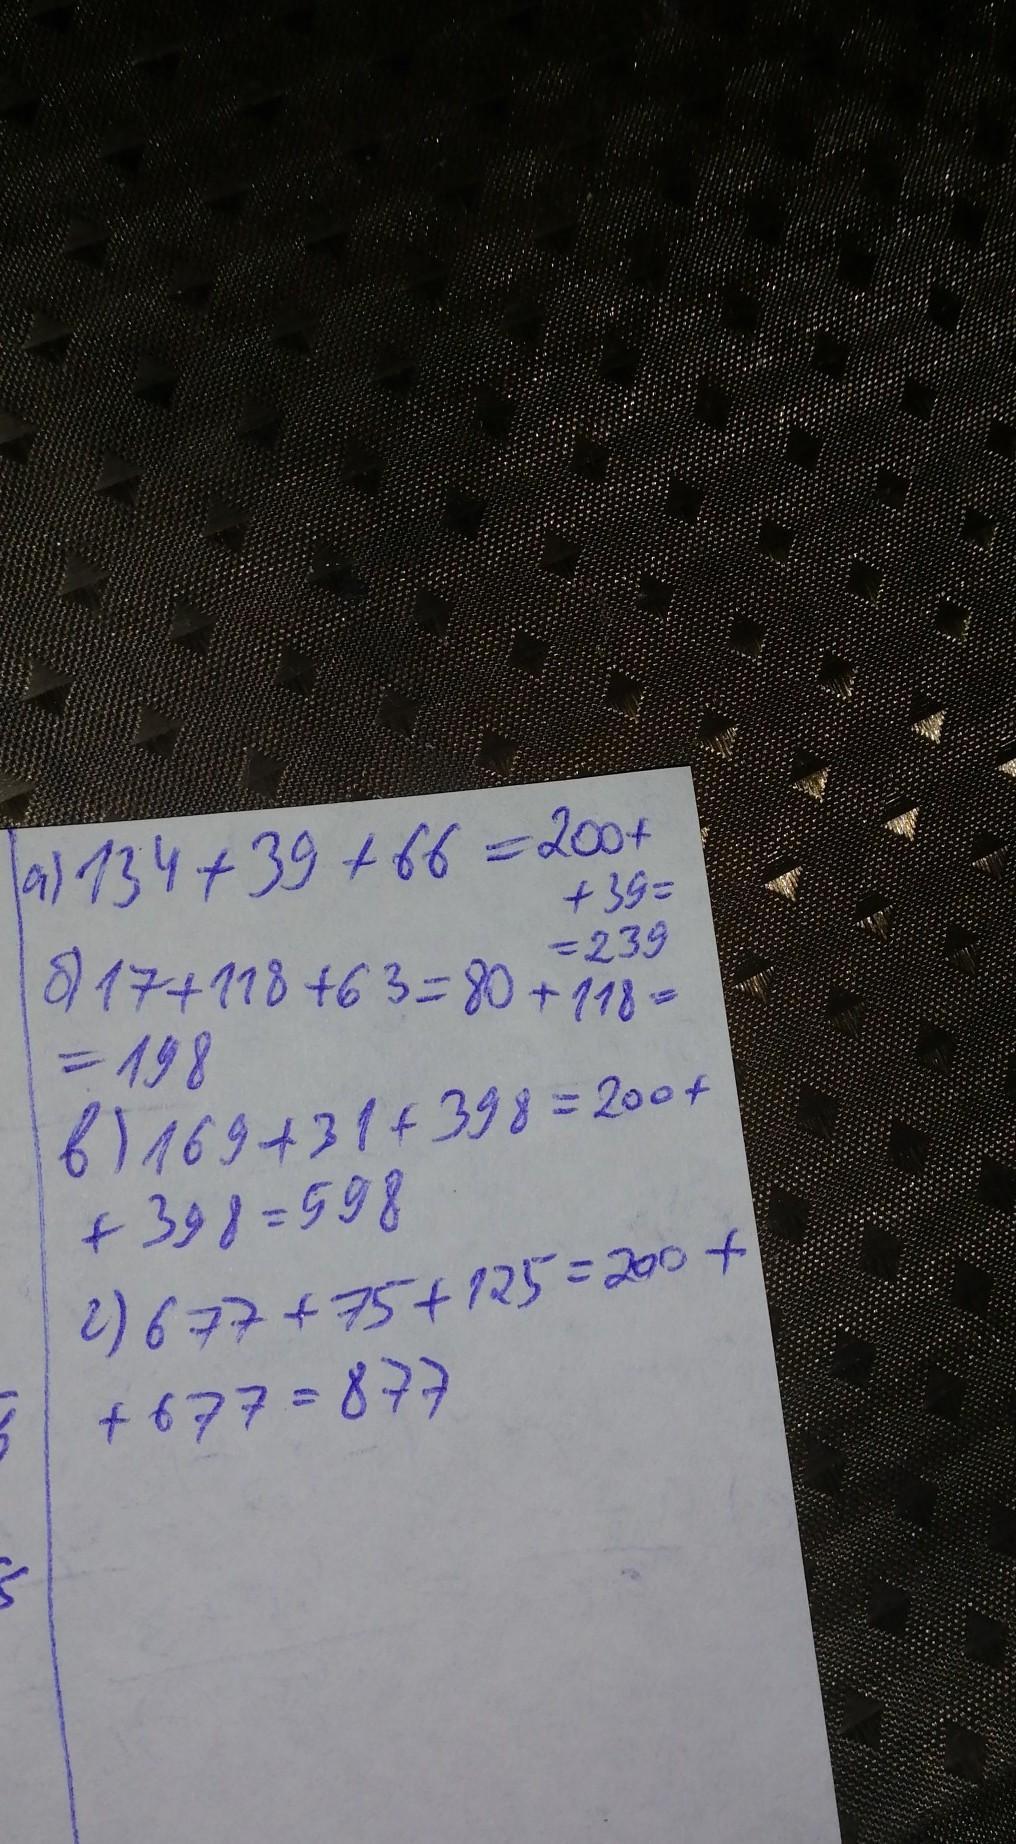 а) 134 + 39 + 66 = 200 +
+ 39 =
= 239
б) 17 + 118 + 63 = 80 + 118 =
= 198
в) 169 + 31 + 398 = 200 +
+ 398 = 598
г) 677 + 75 + 125 = 200 +
+ 677 = 877
5